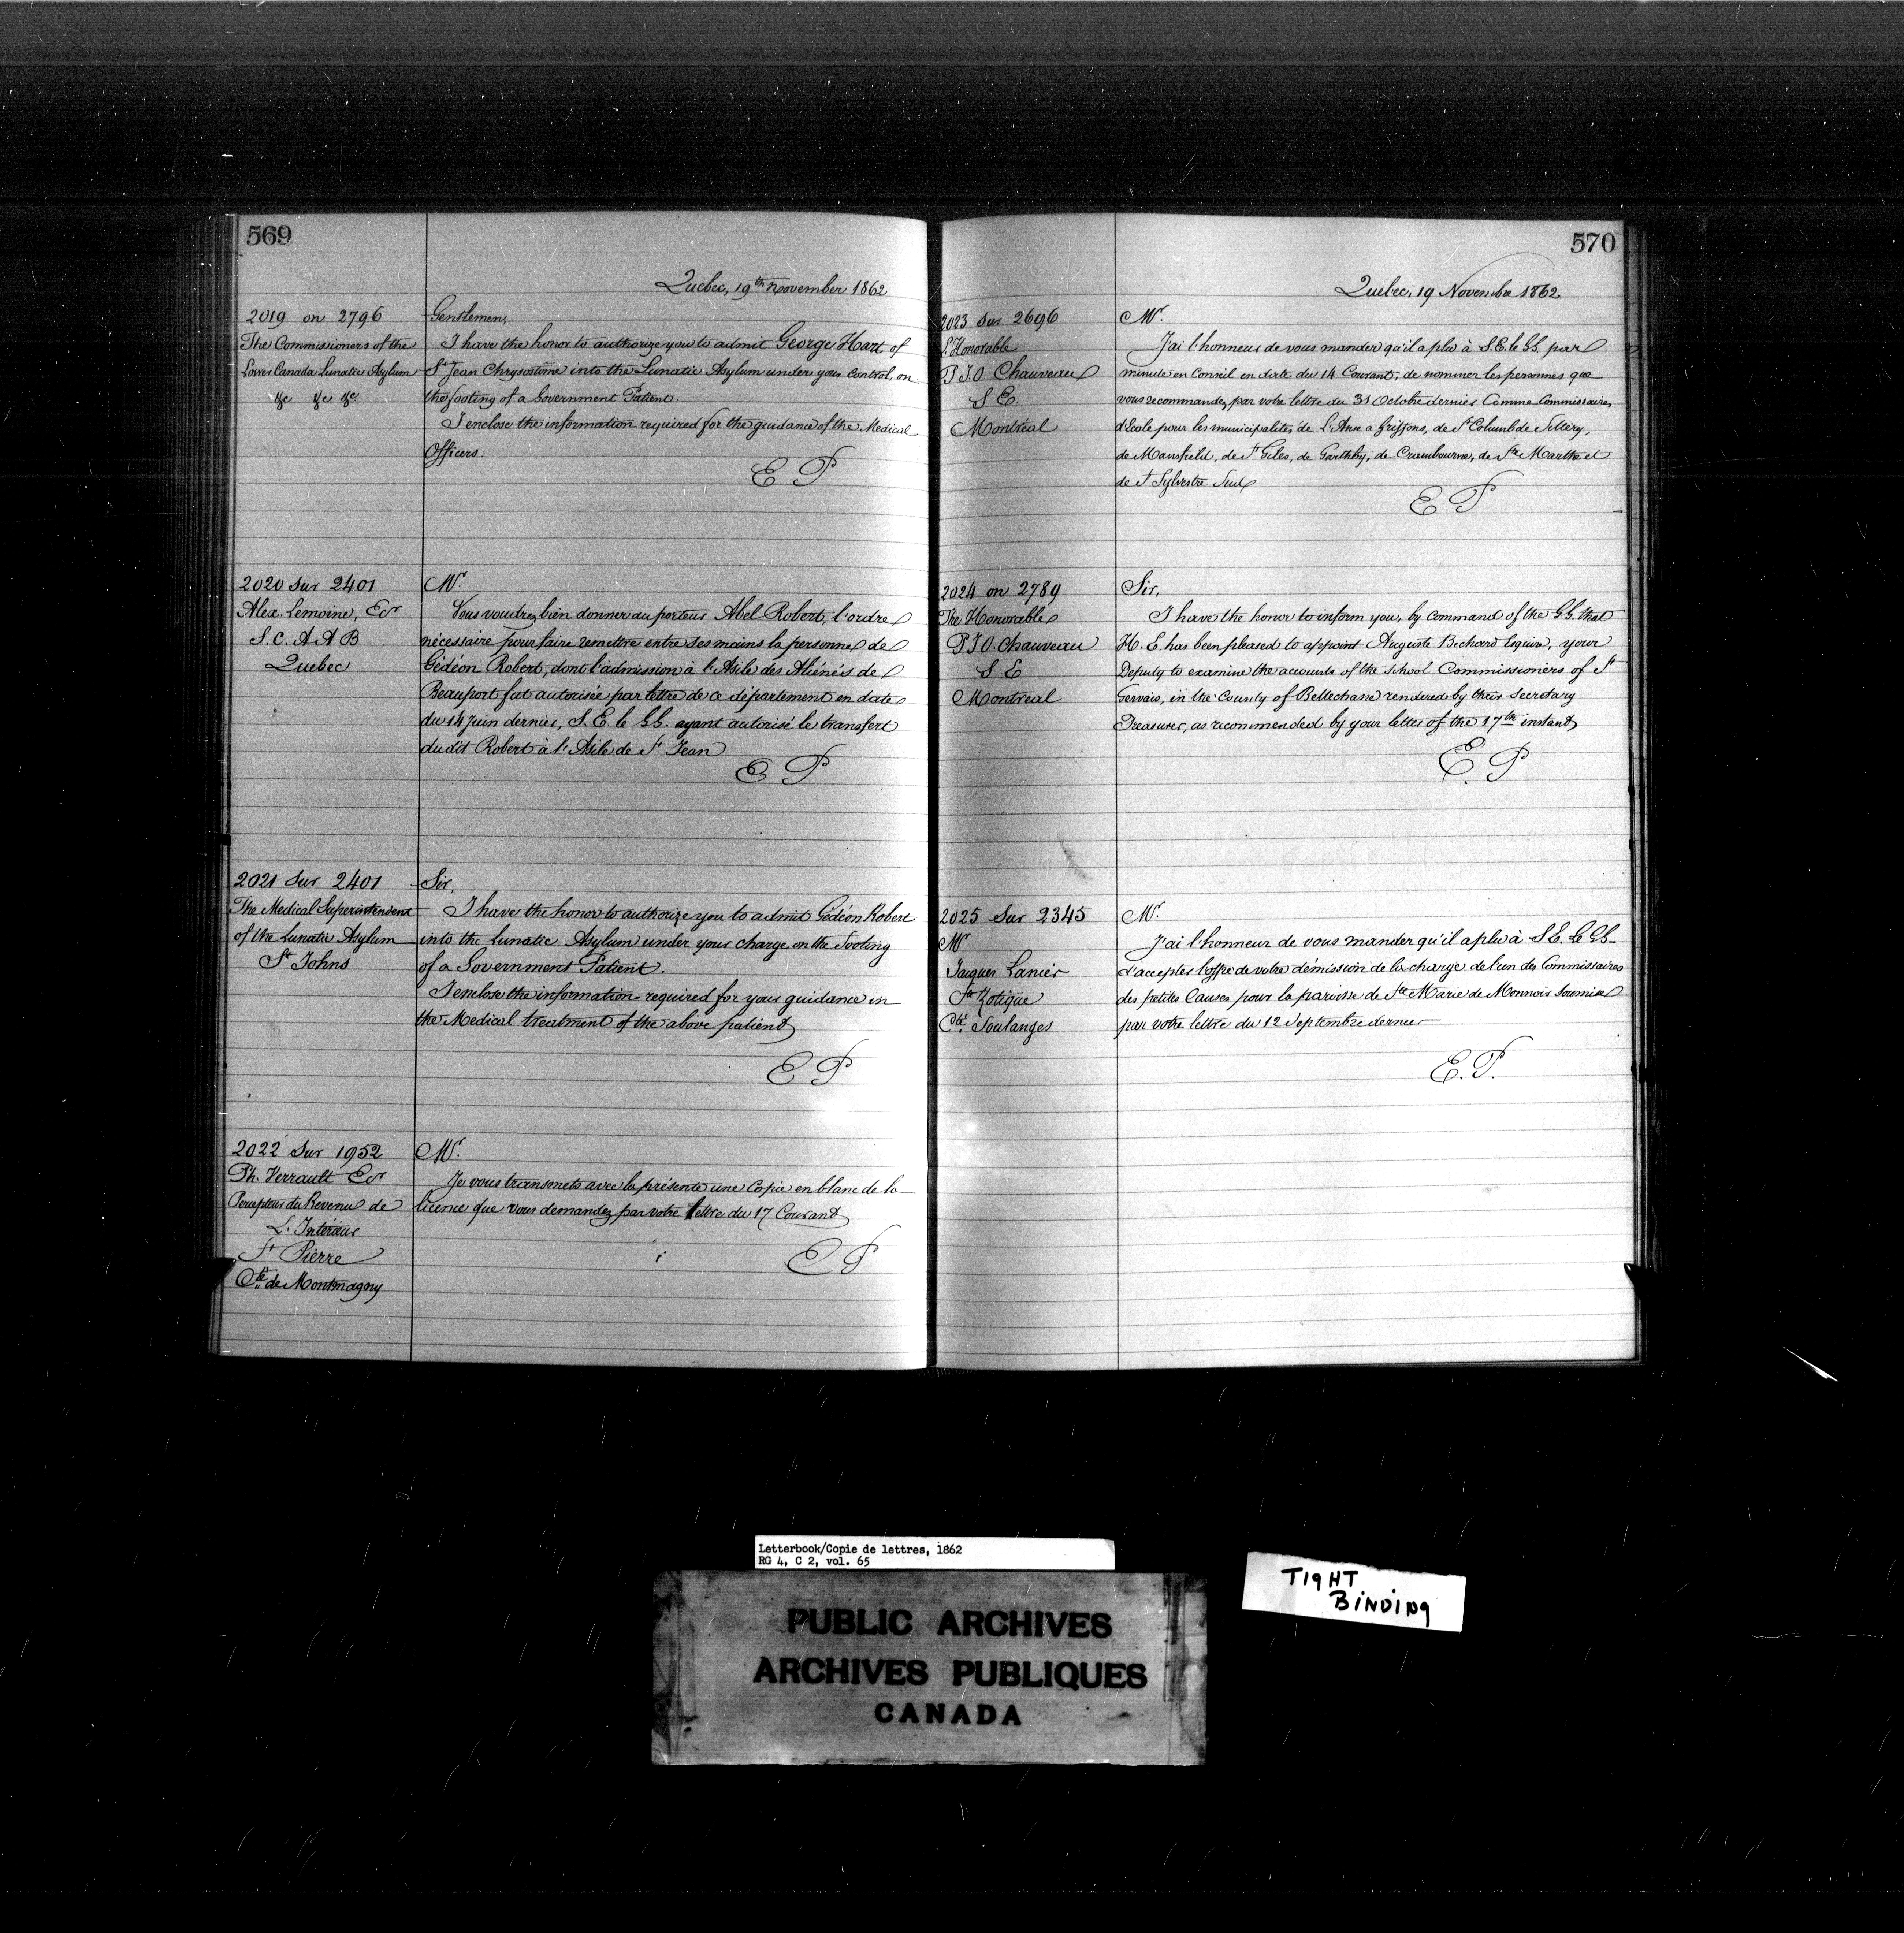 569
Quebec, 19th November 1862
2019 on 2796
The Commissioners of the
Lower Canada Lunatic Asylum
&c &c &c
Gentlemen,
I have the honor to authorize you to admit George Hart of
St Jean Chrysostôme into the Lunatic Asylum under your control, on
the footing of a Government Patient.
I enclose the information required for the guidance of the Medical
Officers.
E P
2020 sur 2401
Alex. Lemoine, Ecr
S. C. A A B
Quebec
Mr.
Vous voudrez bien donner au porteur Abel Robert, l'ordre
nécessaire pour faire remettre entre ses mains la personne de
Gédéon Robert, dont l'admission à l'Asile des Aliénés de
Beauport fut autorisée par lettre de ce département en date
du 14 Juin dernier, S. E. le G G. ayant autorisé le transfert
du dit Robert à l'Asile de St Jean
E P
2021 sur 2401
The Medical Superintendent
of the Lunatic Asylum
St Johns
Sir,
I have the honor to authorize you to admit Gédéon Robert
into the Lunatic Asylum under your charge on the footing
of a Government Patient.
I enclose the information required for your guidance in
the Medical treatment of the above patient
E P
2022 sur 1952
Ph. Verrault Ecr
Percepteur du Revenu de
L'Intérieur
St Pierre
Cté de Montmagny
Mr.
Je vous transmets avec la présente une Copie en blanc de la
licence que vous demandez par votre lettre du 17 Courant
E P
570
Quebec, 19 Novembre 1862
2023 sur 2696
L'Honorable
P J O. Chauveau
S E.
Montréal
Mr.
J'ai l'honneur de vous mander qu'il a plu à S. E. le G G. par
minute en Conseil en date du 14 Courant, de nommer les personnes que
vous recommandez par votre lettre du 31 Octobre dernier Comme Commissaires
d'Ecole pour les municipalités de L'Anse a Griffons, de St Columb de Sillery,
de Mansfield, de St Giles, de Garthby, de Crambourne, de Ste Marthe et
de St Sylvestre Sud
E P
2024 on 2789
The Honorable
P J O. Chauveau
S E
Montreal
Sir,
I have the honor to inform you, by Command of the G G. that
H. E. has been pleased to appoint Auguste Bechard Esquire, your
Deputy to examine the accounts of the School Commissioners of St
Gervais, in the County of Bellechasse rendered by their Secretary
Treasurer, as recommended by your letter of the 17th instant
E. P
2025 sur 2345
Mr
Jacques Lanier
St Zotique
Cté Soulanges
Mr.
J'ai l'honneur de vous mander qu'il a plu à S E. Le G G.
d'accepter l'offre de votre démission de la charge de l'un des Commissaires
des petites Causes pour la paroisse de Ste Marie de Monnoir soumise
par votre lettre du 12 Septembre dernier
E. P.
Letterbook/Copie de lettres, 1862
RG 4, C 2, vol. 65
TIGHT
BINDING
PUBLIC ARCHIVES
ARCHIVES PUBLIQUES
CANADA